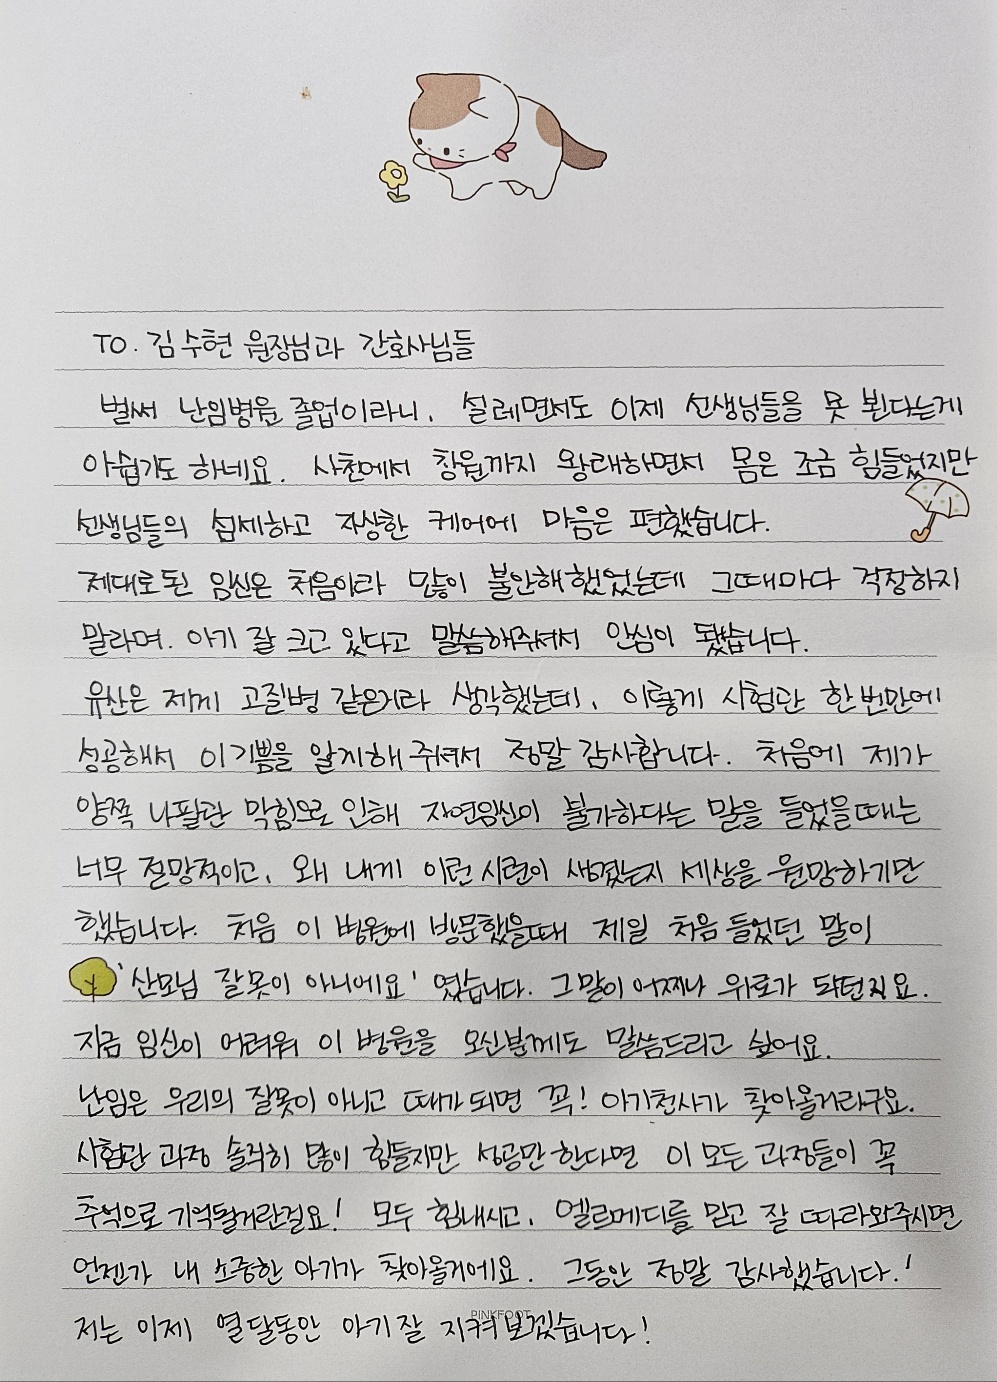 TO. 김수현 원장님과 간호사님들
벌써 난임병원 졸업이라니, 설레면서도 이제 선생님들을 못 뵌다는게
아쉽기도 하네요. 사천에서 창원까지 왕래하면서 몸은 조금 힘들었지만
선생님들의 섬세하고 자상한 케어에 마음은 편했습니다.
제대로된 임신은 처음이라 많이 불안해했었는데 그때마다 걱정하지
말라며. 아기 잘 크고 있다고 말씀해주셔서 안심이 됐습니다.
유산은 제게 고질병 같은거라 생각했는데, 이렇게 시험관 한번만에
성공해서 이 기쁨을 알게해 주셔서 정말 감사합니다. 처음에 제가
양쪽 나팔관 막힘으로 인해 자연임신이 불가하다는 말을 들었을때는
너무 절망적이고, 왜 내게 이런 시련이 생겼는지 세상을 원망하기만
했습니다. 처음 이 병원에 방문했을때 제일 처음 들었던 말이
'산모님 잘못이 아니에요' 였습니다. 그말이 어찌나 위로가 되던지요.
지금 임신이 어려워 이 병원을 오신분께도 말씀드리고 싶어요.
난임은 우리의 잘못이 아니고 때가 되면 꼭! 아기천사가 찾아올거라구요.
시험관 과정 솔직히 많이 힘들지만 성공만 한다면 이 모든 과정들이 꼭
추억으로 기억될거란걸요! 모두 힘내시고, 엘르메디를 믿고 잘 따라와주시면
언젠가 내 소중한 아기가 찾아올거에요. 그동안 정말 감사했습니다.!
저는 이제 열달동안 아기 잘 지켜보겠습니다!
PINKFOOT